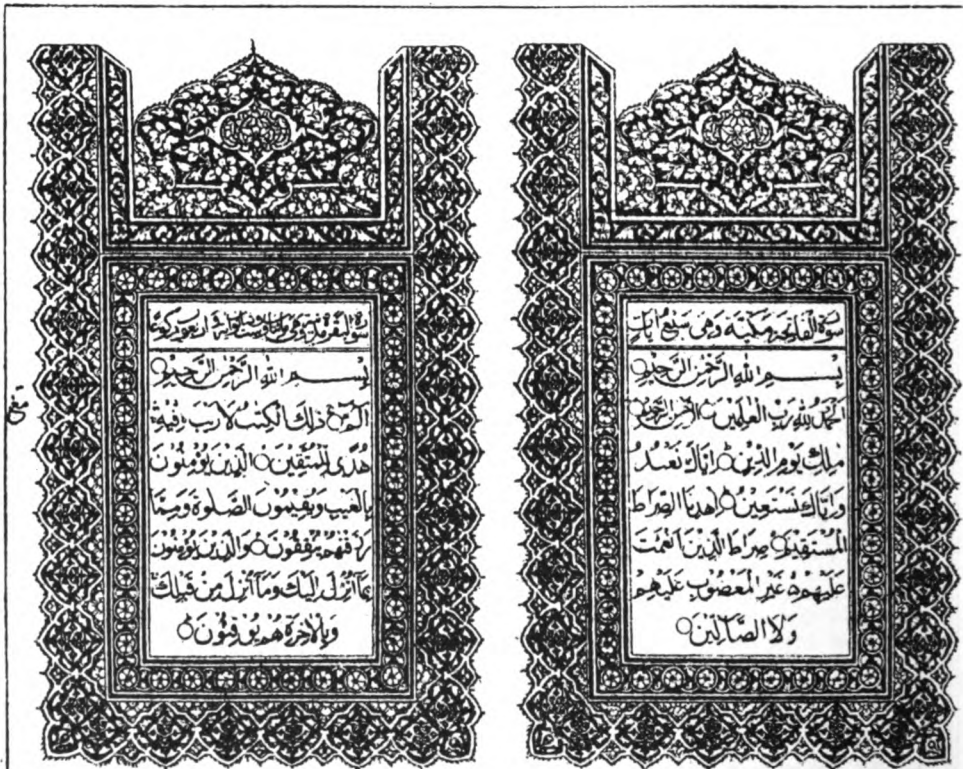 سورة الفاتحة مكية وهي سبع آيات
بسم الله الرحمن الرحيم
الحمد لله رب العلمين الرحمن الرحيم
ملك يوم الدين اياك نعبد
واياك نستعين اهدنا الصراط
المستقيم صراط الذين انعمت
عليهم غير المغضوب عليهم
ولا الضالين
سورة البقرة
بسم الله الرحمن الرحيم
الم ذلك الكتب لا ريب فيه
هدى للمتقين الذين يؤمنون
بالغيب ويقيمون الصلوة ومما
رزقنهم ينفقون والذين يؤمنون
بما أنزل اليك وما أنزل من قبلك
وبالاخرة هم يوقنون